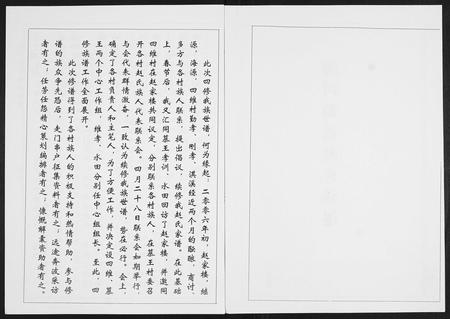 此次四修我族世谱，何为缘起，二零零六年初，赵家楼，继
源、海源，四维村勤孝、刚孝、淇溪经近两个月的酝酿，商讨，
多方与各村族人联系，提出倡议，续修我赵氏家谱。在此基础
上，春节后，我又汇同墓王孝训、水田回访了赵家楼，并邀同
四维村在赵家楼共同议定，分别联系各村族人，在墓王村委召
开各村赵氏族人代表联系会。四月二十八日联系会如期举行，
与会代表群情激奋，一致认为续修我族世谱，势在必行。会上，
确定了各村负责人和主笔人，为了方便工作，并决定设四维、墓
王两个中心工作组，维孝、水田分别任中心组组长。至此，四
修族谱工作全面展开。
此次修谱得到了各村族人的积极支持和热情帮助，参与修
谱的族众争先恐后，走门串户征集资料者有之；远途奔波采访
者有之；任劳任怨精心策划编排者有之；慷慨解囊资助者有之。